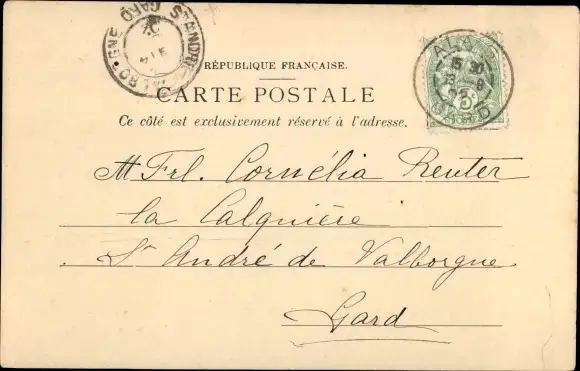 RÉPUBLIQUE FRANÇAISE.
CARTE POSTALE
Ce côté est exclusivement réservé à l'adresse.
Frl. Cornélia Reuter
la Calquière
St André de Valborgne
Gard
GARD